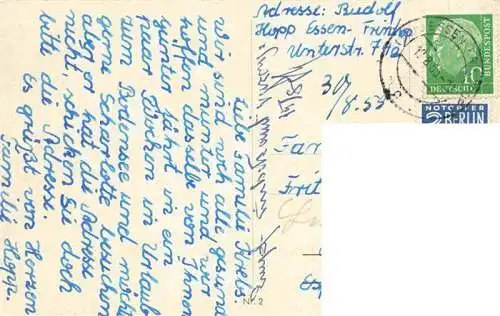 Liebe Familie Krebs.
Wir sind noch alle gesund
und munter und wir
hoffen dasselbe von Ihnen
Gunter fährt in ein
paar Wochen in Urlaub
zum Bodensee und möchte
gerne Scharlotte besuchen
aber er hat die Adresse
nicht, schicken Sie doch
bitte die Adresse.
Es grüßt von Herzen
Familie Hopp.
Adresse: Rudolf
Hopp Essen-Frintrop
Unterstr. 71a
30/8.55
DEUTSCHE
BUNDESPOST
10
NOTOPFER
2 BERLIN
Fam
Frit
Nr. 2